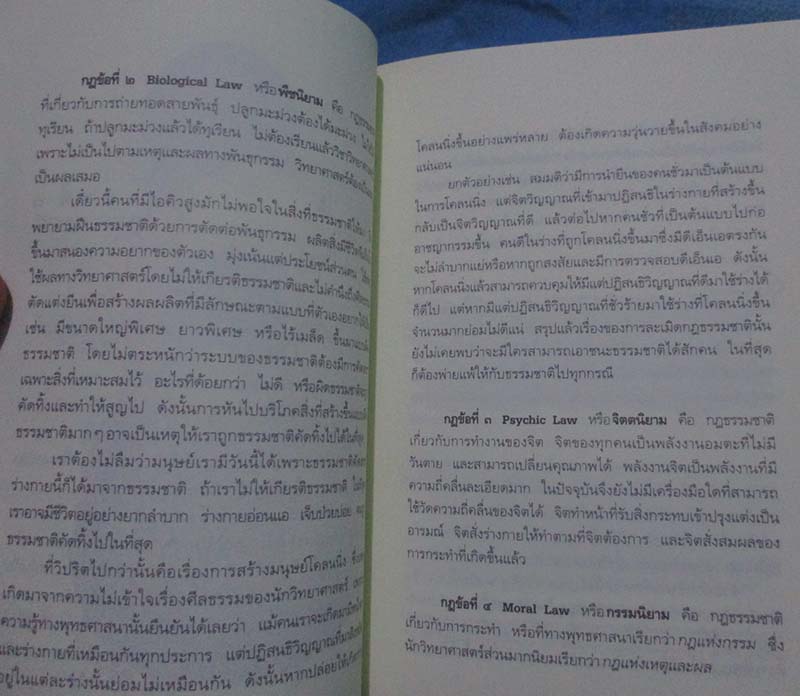 กฎข้อที่ ๒ Biological Law หรือพืชนิยาม คือ
ที่เกี่ยวกับการถ่ายทอดสายพันธุ์ ปลูกมะม่วงต้องได้มะม่วง
ทุเรียน ถ้าปลูกมะม่วงแล้วได้ทุเรียน ไม่ต้องเรียนแล้ววิชาวิทยาศาสตร์
เพราะไม่เป็นไปตามเหตุและผลทางพันธุกรรม วิทยาศาสตร์ต้องเป็นเหตุ
เป็นผลเสมอ
เดี๋ยวนี้คนที่มีไอคิวสูงมักไม่พอใจในสิ่งที่ธรรมชาติให้มา
พยายามฝืนธรรมชาติด้วยการตัดต่อพันธุกรรม ผลิตสิ่งมีชีวิต
ขึ้นมาสนองความอยากของตัวเอง มุ่งเน้นแต่ประโยชน์ส่วนตน
ใช้ผลทางวิทยาศาสตร์โดยไม่ให้เกียรติธรรมชาติและไม่คำนึงถึง
ตัดแต่งยีนเพื่อสร้างผลผลิตที่มีลักษณะตามแบบที่ตัวเองอยาก
เช่น มีขนาดใหญ่พิเศษ ยาวพิเศษ หรือไร้เมล็ด ขึ้นมา
ธรรมชาติ โดยไม่ตระหนักว่าระบบของธรรมชาติต้องมีการคัดสรร
เฉพาะสิ่งที่เหมาะสมไว้ อะไรที่ด้อยกว่า ไม่ดี หรือผิดธรรมชาติ
คัดทิ้งและทำให้สูญไป ดังนั้นการหันไปบริโภคสิ่งที่สร้างขึ้น
ธรรมชาติมากๆ อาจเป็นเหตุให้เราถูกธรรมชาติคัดทิ้งไปได้ในที่สุด
เราต้องไม่ลืมว่ามนุษย์เรามีวันนี้ได้เพราะธรรมชาติคัด
ร่างกายนี้ก็ได้มาจากธรรมชาติ ถ้าเราไม่ให้เกียรติธรรมชาติ
เราอาจมีชีวิตอยู่อย่างยากลำบาก ร่างกายอ่อนแอ เจ็บป่วยบ่อย
ธรรมชาติคัดทิ้งไปในที่สุด
ที่วิปริตไปกว่านั้นคือเรื่องการสร้างมนุษย์โคลนนิ่ง
เกิดมาจากความไม่เข้าใจเรื่องศีลธรรมของนักวิทยาศาสตร์
ความรู้ทางพุทธศาสนานั้นยืนยันได้เลยว่า แม้คนเราจะเกิดมา
และร่างกายที่เหมือนกันทุกประการ แต่ปฏิสนธิวิญญาณที่มา
อยู่ในแต่ละร่างนั้นย่อมไม่เหมือนกัน ดังนั้นหากปล่อยให้
โคลนนิ่งขึ้นอย่างแพร่หลาย ต้องเกิดความวุ่นวายขึ้นในสังคมอย่าง
แน่นอน
ยกตัวอย่างเช่น สมมติว่ามีการนำยีนของคนชั่วมาเป็นต้นแบบ
ในการโคลนนิ่ง แต่จิตวิญญาณที่เข้ามาปฏิสนธิในร่างกายที่สร้างขึ้น
กลับเป็นจิตวิญญาณที่ดี แล้วต่อไปหากคนชั่วที่เป็นต้นแบบไปก่อ
อาชญากรรมขึ้น คนดีในร่างที่ถูกโคลนนิ่งขึ้นมาซึ่งมีดีเอ็นเอตรงกัน
จะไม่ลำบากแย่หรือหากถูกสงสัยและมีการตรวจสอบดีเอ็นเอ ดังนั้น
หากโคลนนิ่งแล้วสามารถควบคุมให้มีแต่ปฏิสนธิวิญญาณที่ดีมาใช้ร่างได้
ก็ดีไป แต่หากมีแต่ปฏิสนธิวิญญาณที่ชั่วร้ายมาใช้ร่างที่โคลนนิ่งขึ้น
จำนวนมากย่อมไม่ดีแน่ สรุปแล้วเรื่องของการละเมิดกฎธรรมชาตินั้น
ยังไม่เคยพบว่าจะมีใครสามารถเอาชนะธรรมชาติได้สักคน ในที่สุด
ก็ต้องพ่ายแพ้ให้กับธรรมชาติไปทุกกรณี
กฎข้อที่ ๓ Psychic Law หรือจิตตนิยาม คือ กฎธรรมชาติ
เกี่ยวกับการทำงานของจิต จิตของทุกคนเป็นพลังงานอมตะที่ไม่มี
วันตาย และสามารถเปลี่ยนคุณภาพได้ พลังงานจิตเป็นพลังงานที่มี
ความถี่คลื่นละเอียดมาก ในปัจจุบันจึงยังไม่มีเครื่องมือใดที่สามารถ
ใช้วัดความถี่คลื่นของจิตได้ จิตทำหน้าที่รับสิ่งกระทบเข้าปรุงแต่งเป็น
อารมณ์ จิตสั่งร่างกายให้ทำตามที่จิตต้องการ และจิตสั่งสมผลของ
การกระทำที่เกิดขึ้นแล้ว
กฎข้อที่ ๔ Moral Law หรือกรรมนิยาม คือ กฎธรรมชาติ
เกี่ยวกับการกระทำ หรือที่ทางพุทธศาสนาเรียกว่า กฎแห่งกรรม ซึ่ง
นักวิทยาศาสตร์ส่วนมากนิยมเรียกว่า กฎแห่งเหตุและผล